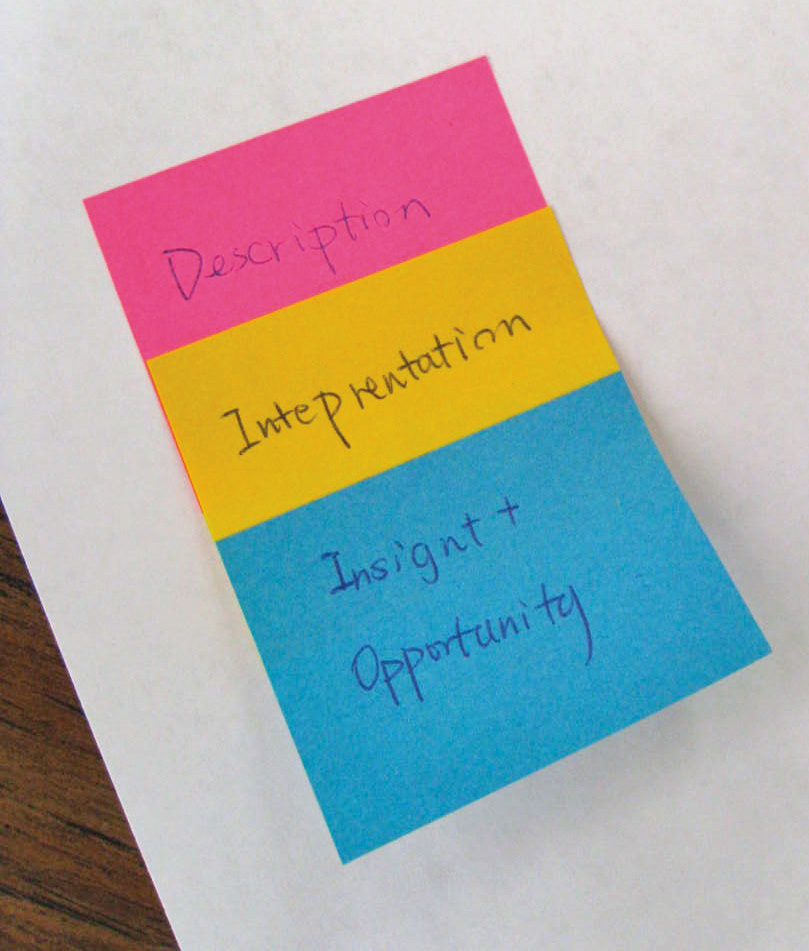 Description
Inteprentation
Insignt +
Opportunity